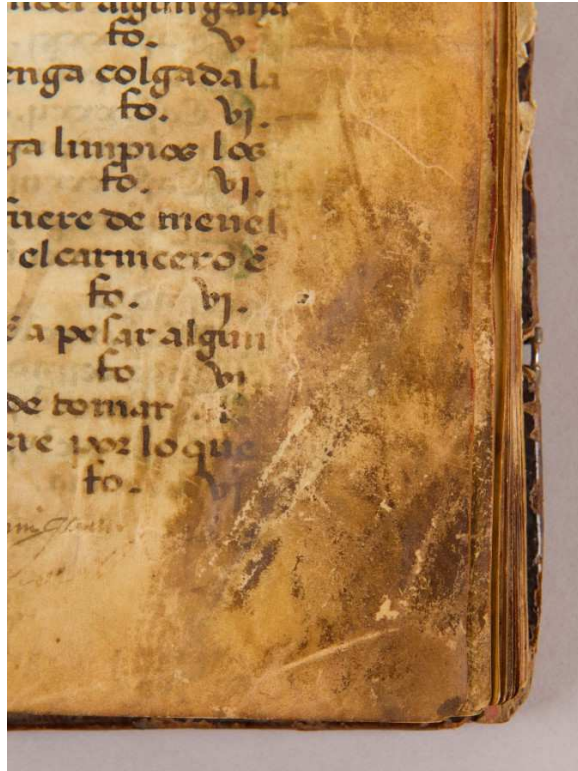 algun gana
fo. v.
enga colgada la
fo. vi.
ga limpios los
fo. vi.
fuere de menes
el carnicero e
fo. vi.
a pesar algun
fo vi
de tomar
por lo que
fo. vi